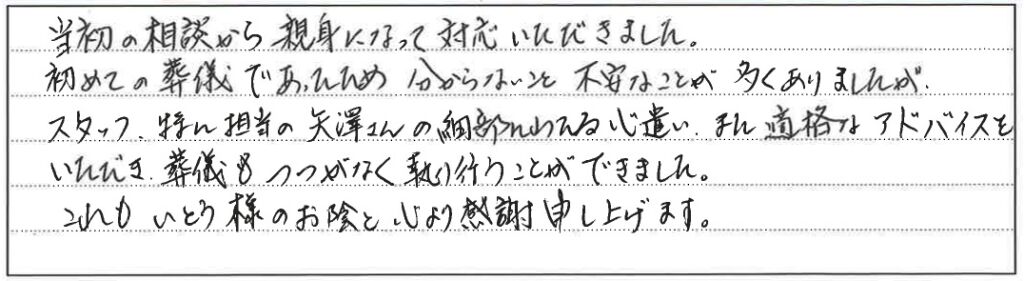 当初の相談から親身になって対応いただきました。
初めての葬儀であったため分からないこと不安なことが多くありましたが、
スタッフ、特に担当の矢澤さんの細部にわたる心遣い、また適格なアドバイスを
いただき、葬儀もつつがなく執り行うことができました。
これもいとう様のお陰と心より感謝申し上げます。